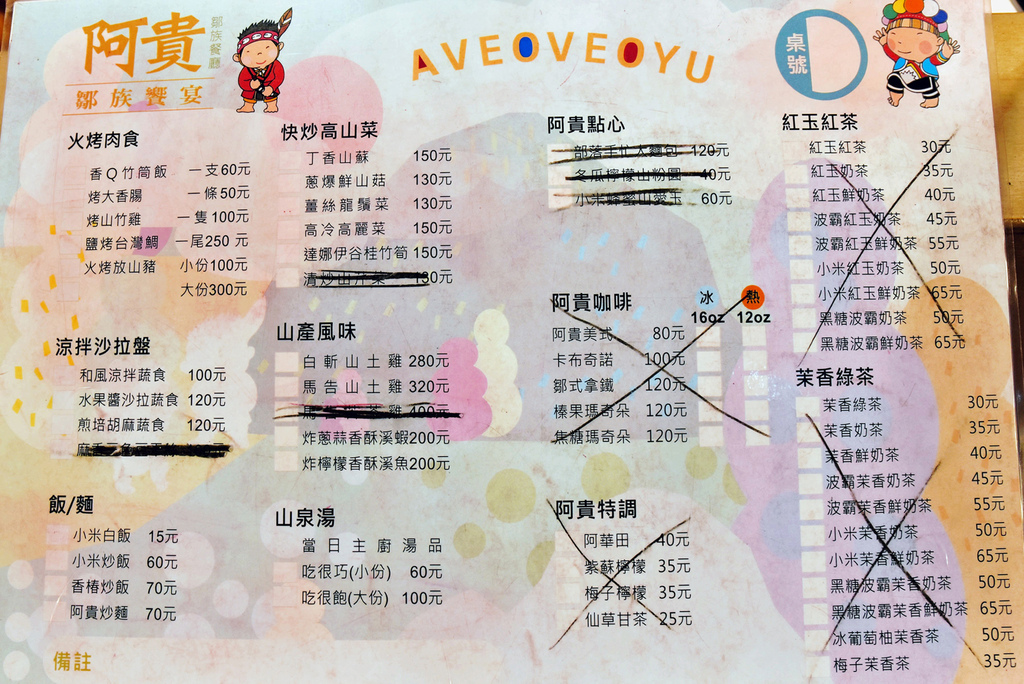 阿貴
鄒族餐廳
鄒族饗宴
AVEOVEOYU
桌號
火烤肉食
香Q竹筒飯 一支60元
烤大香腸 一條50元
烤山竹雞 一隻100元
鹽烤台灣鯛 一尾250元
火烤放山豬 小份100元
大份300元
涼拌沙拉盤
和風涼拌蔬食 100元
水果醬沙拉蔬食 120元
煎培胡麻蔬食 120元
飯/麵
小米白飯 15元
小米炒飯 60元
香椿炒飯 70元
阿貴炒麵 70元
備註
快炒高山菜
丁香山蘇 150元
蔥爆鮮山菇 130元
薑絲龍鬚菜 130元
高冷高麗菜 150元
達娜伊谷桂竹筍 150元
清炒山芹菜 130元
山產風味
白斬山土雞 280元
馬告山土雞 320元
雞 400元
炸蔥蒜香酥溪蝦200元
炸檸檬香酥溪魚200元
山泉湯
當日主廚湯品
吃很巧(小份) 60元
吃很飽(大份) 100元
阿貴點心
部落手竹太麵包 120元
冬瓜檸檬山粉圓 40元
小米蜂蜜山愛玉 60元
阿貴咖啡 冰 熱
16oz 12oz
阿貴美式 80元
卡布奇諾 100元
鄒式拿鐵 120元
榛果瑪奇朵 120元
焦糖瑪奇朵 120元
阿貴特調
阿華田 40元
紫蘇檸檬 35元
梅子檸檬 35元
仙草甘茶 25元
紅玉紅茶
紅玉紅茶 30元
紅玉奶茶 35元
紅玉鮮奶茶 40元
波霸紅玉奶茶 45元
波霸紅玉鮮奶茶 55元
小米紅玉奶茶 50元
小米紅玉鮮奶茶 65元
黑糖波霸奶茶 50元
黑糖波霸鮮奶茶 65元
茉香綠茶
茉香綠茶 30元
茉香奶茶 35元
茉香鮮奶茶 40元
波霸茉香奶茶 45元
波霸茉香鮮奶茶 55元
小米茉香奶茶 50元
小米茉香鮮奶茶 65元
黑糖波霸茉香奶茶 50元
黑糖波霸茉香鮮奶茶 65元
冰葡萄柚茉香茶 50元
梅子茉香茶 35元